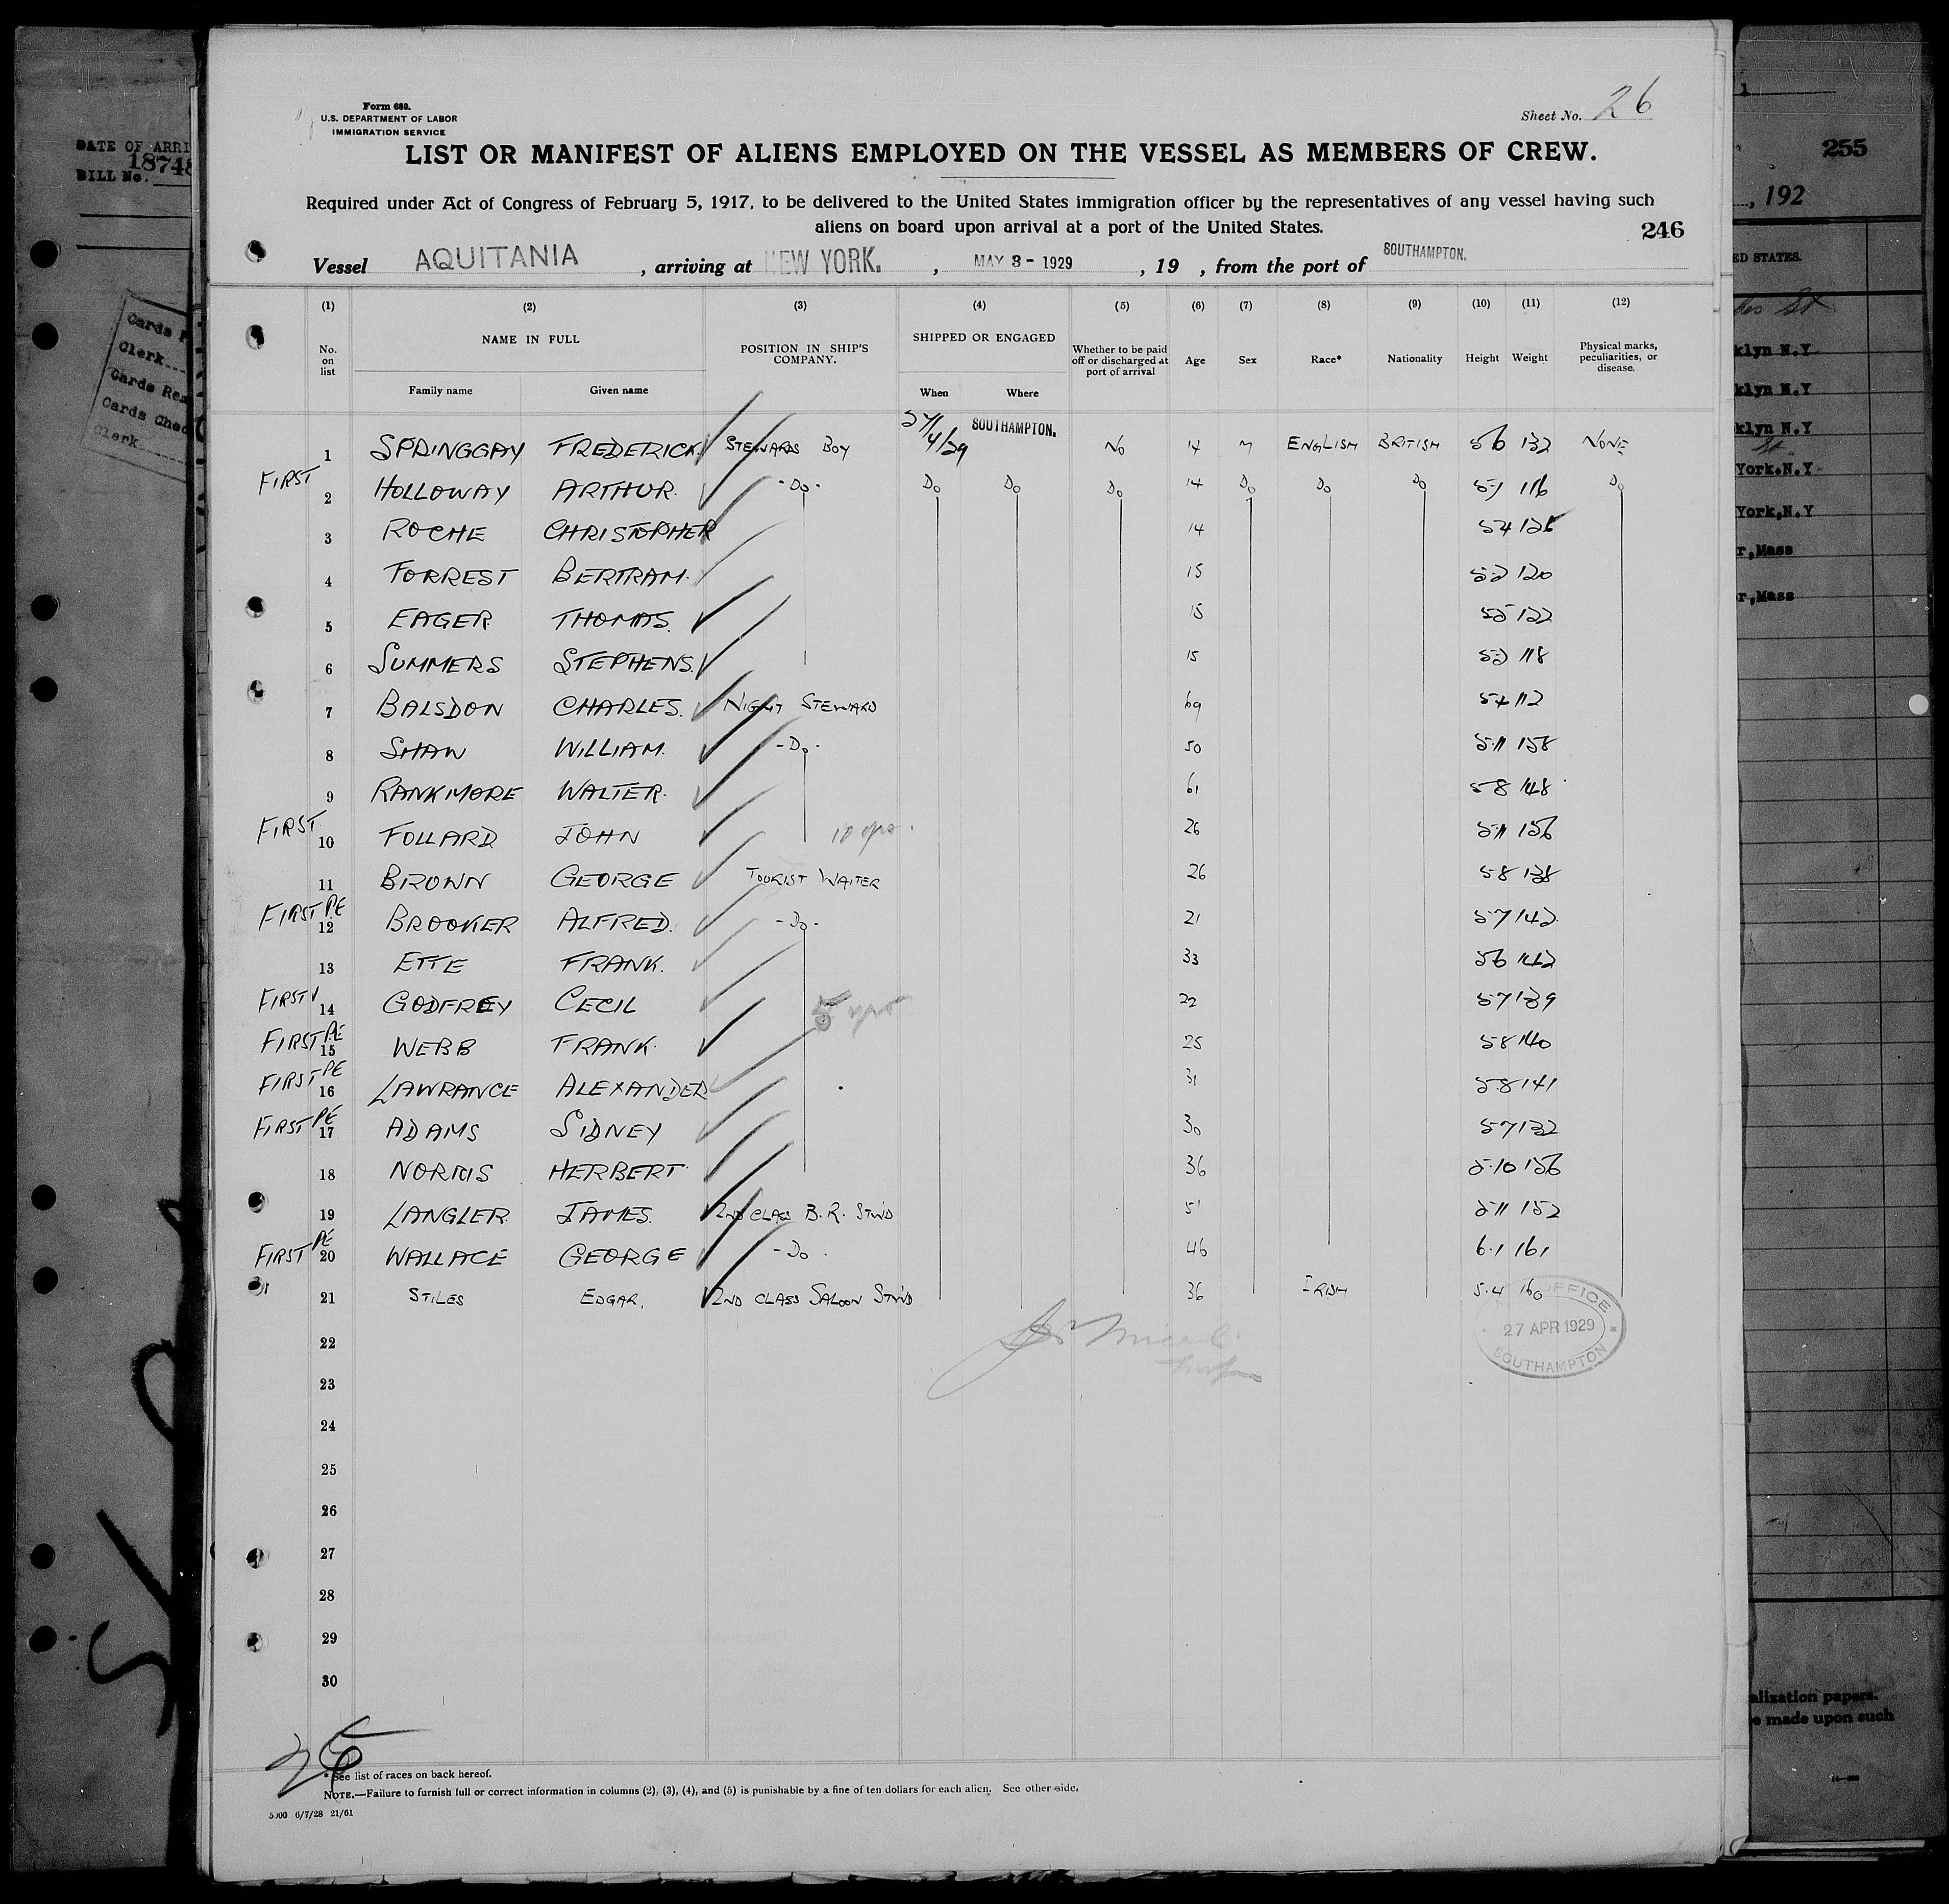 Form 680.
U.S. DEPARTMENT OF LABOR
IMMIGRATION SERVICE
Sheet No. 26
LIST OR MANIFEST OF ALIENS EMPLOYED ON THE VESSEL AS MEMBERS OF CREW.
Required under Act of Congress of February 5, 1917, to be delivered to the United States immigration officer by the representatives of any vessel having such
aliens on board upon arrival at a port of the United States.
246
Vessel AQUITANIA, arriving at NEW YORK., MAY 3 - 1929, 19 , from the port of SOUTHAMPTON.
(1) (2) (3) (4) (5) (6) (7) (8) (9) (10) (11) (12)
No. on list NAME IN FULL Family name Given name POSITION IN SHIP'S COMPANY. SHIPPED OR ENGAGED When Where Whether to be paid off or discharged at port of arrival Age Sex Race* Nationality Height Weight Physical marks, peculiarities, or disease.
1 SPRINGGAY FREDERICK STEWARDS BOY 27/4/29 SOUTHAMPTON. NO 14 M ENGLISH BRITISH 56 132 NONE
FIRST 2 HOLLOWAY ARTHUR. -Do- Do Do Do 14 Do Do Do 5-1 116 Do
3 ROCHE CHRISTOPHER 14 54 126
4 FORREST BERTRAM. 15 5-2 120
5 EAGER THOMAS. 15 55 122
6 SUMMERS STEPHENS. 15 52 118
7 BALSDON CHARLES. NIGHT STEWARD 69 54 112
8 SHAW WILLIAM. -Do- 50 5·11 158
9 RANKMORE WALTER. 61 58 148
FIRST 10 FOLLARD JOHN 26 5·11 156
11 BROWN GEORGE TOURIST WAITER 26 58 138
FIRST PE 12 BROOKER ALFRED. -Do- 21 57 142
13 ETTE FRANK. 33 56 142
FIRST 14 GODFREY CECIL 22 57 139
FIRST PE 15 WEBB FRANK. 25 58 140
FIRST PE 16 LAWRANCE ALEXANDER 31 5·8 141
FIRST PE 17 ADAMS SIDNEY 30 57 132
18 NORRIS HERBERT 36 5·10 156
19 LANGLER JAMES. 2ND CLASS B.R. STWD 51 5·11 152
FIRST PE 20 WALLACE GEORGE -Do. 46 6·1 161
21 STILES EDGAR. 2ND CLASS SALOON STWD 36 IRISH 5·4 160
22
OFFICE
27 APR 1929
SOUTHAMPTON
23
24
25
26
27
28
29
30
26
* See list of races on back hereof.
NOTE.—Failure to furnish full or correct information in columns (2), (3), (4), and (5) is punishable by a fine of ten dollars for each alien. See other side.
5000 6/7/28 21/61
DATE OF ARRI
18748
BILL No.
Cards
Clerk
Cards
Cards
Clerk
1
255
, 192
ED STATES.
klyn N.Y
klyn N.Y
klyn N.Y
York.N.Y
York,N.Y
r,Mass
r,Mass
alization papers.
e made upon such